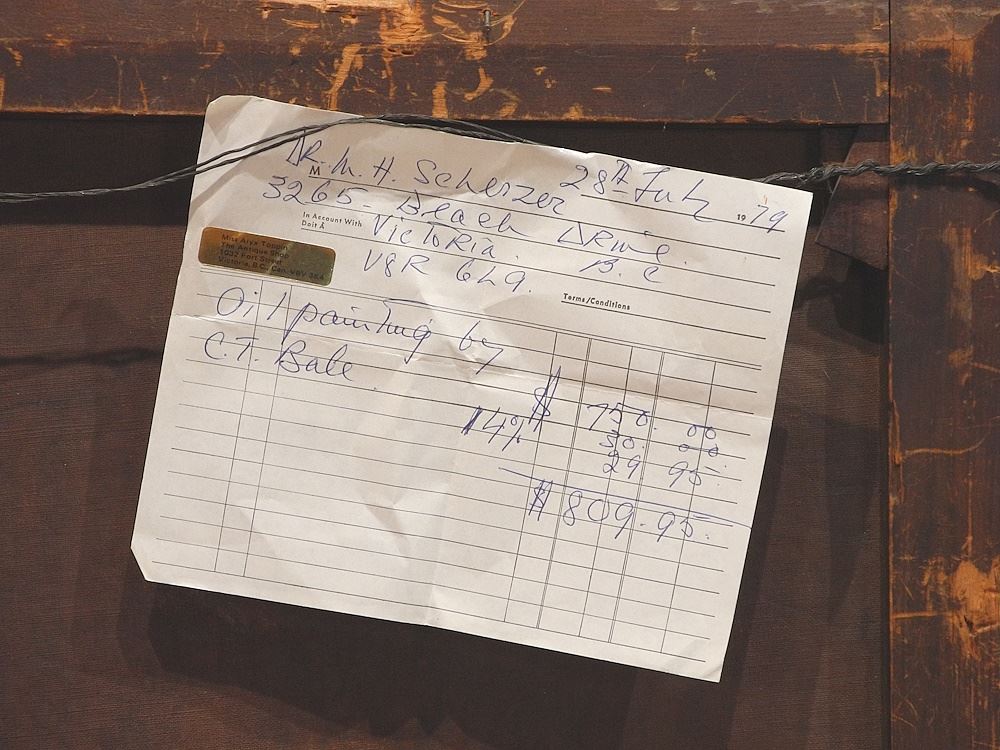 DR. M. H. Scherzer 28th July 1979
M
3265 - Beach DRive.
In Account With
Doit À
Victoria. B.C
V8R 6L9.
Terms/Conditions
Miss Aryx Toppin
The Antique Shop
1032 Fort Street
Victoria, B.C., Can. V8V 3K4
Oil painting by
C.T. Bale.
$ 750. 00
4% 30. 00
29 95.
$ 809.95.